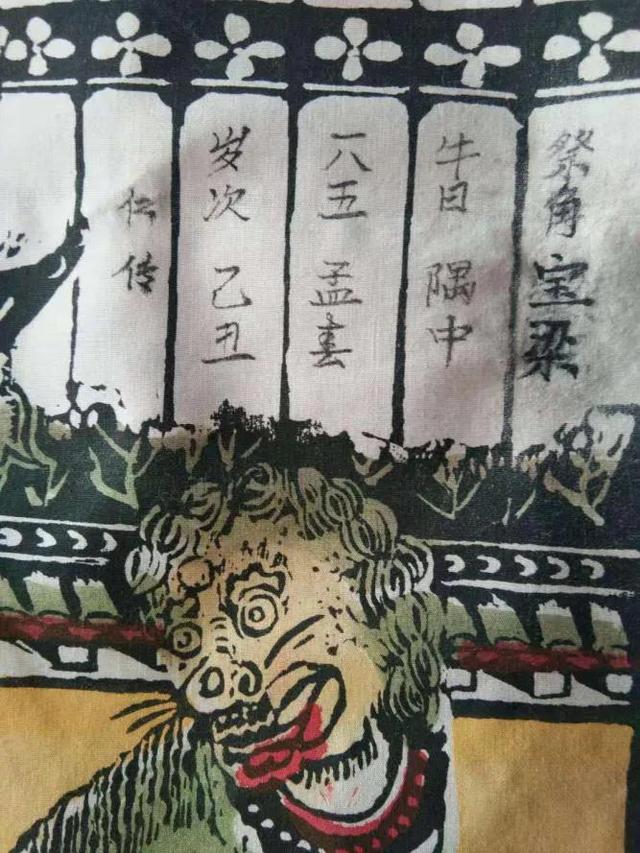 祭角宝梁
牛日 隅中
一八五 孟春
岁次 己丑
仁传